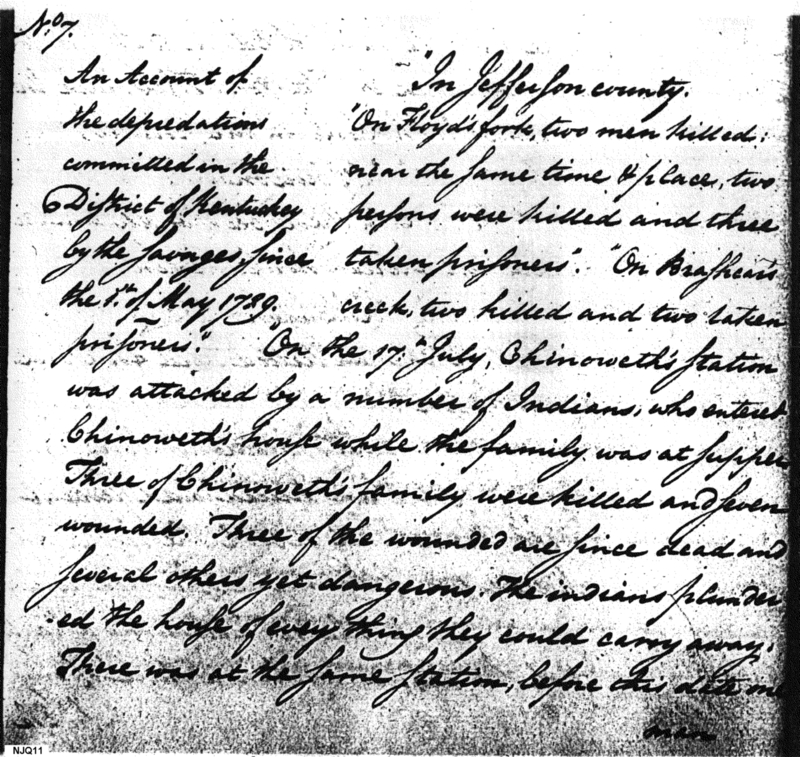 No. 7.
An Account of
the depredations
committed in the
District of Kentuckey
by the Savages, since
the 1st. of May 1789.
"In Jefferson county.
"On Floyd's fork, two men killed:
near the same time & place, two
persons were killed and three
taken prisoners". "On Brashear's
creek, two killed and two taken
prisoners." "On the 17th. July, Chinoweth's Station
was attacked by a number of Indians, who entered
Chinoweth's house while the family was at supper
Three of Chinoweth's family were killed and seven
wounded. Three of the wounded are since dead and
several others yet dangerous. The indians plunder
-ed the house of every thing they could carry away.
There was at the same station, before this date one
man
NJQ11